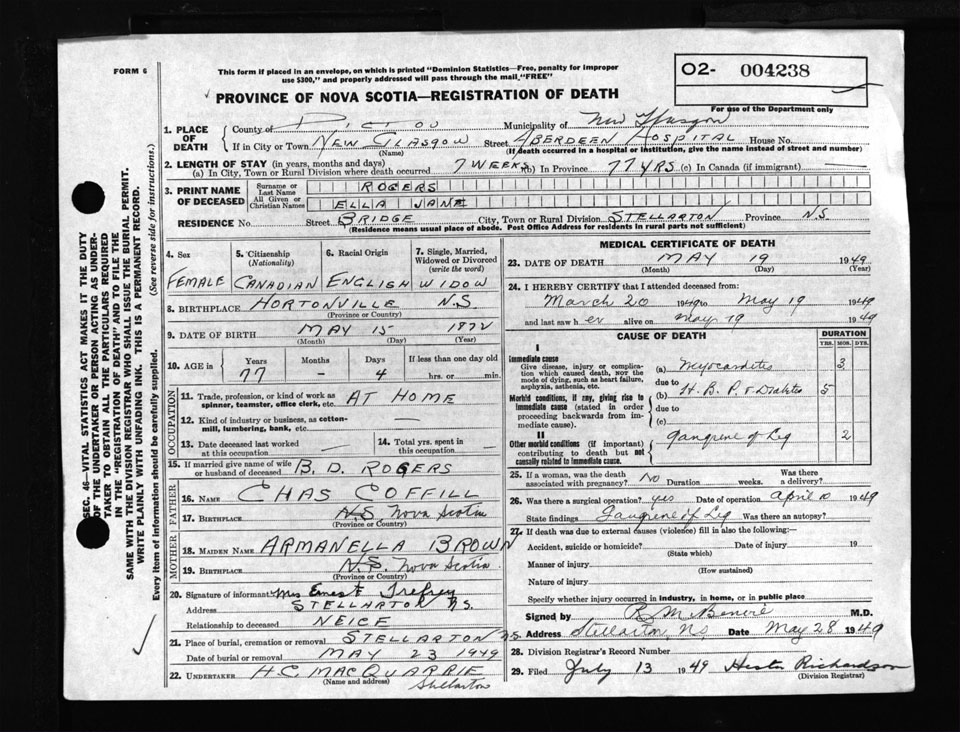 FORM 6
This form if placed in an envelope, on which is printed "Dominion Statistics—Free, penalty for improper
use $300," and properly addressed will pass through the mail "FREE"
O2- 004238
PROVINCE OF NOVA SCOTIA—REGISTRATION OF DEATH
For use of the Department only
1. PLACE OF DEATH
County of Pictou Municipality of New Glasgow
If in City or Town New Glasgow Street Aberdeen Hospital House No.
(Name) (If death occurred in a hospital or institution, give the name instead of street and number)
2. LENGTH OF STAY (in years, months and days)
(a) In City, Town or Rural Division where death occurred 7 WEEKS (b) In Province 77 YRS (c) In Canada (if immigrant) —
3. PRINT NAME OF DECEASED
Surname or Last Name ROGERS
All Given or Christian Names ELLA JANE
RESIDENCE No. Street BRIDGE City, Town or Rural Division STELLARTON Province N.S.
(Residence means usual place of abode. Post Office Address for residents in rural parts not sufficient)
4. Sex 5. Citizenship (Nationality) 6. Racial Origin 7. Single, Married, Widowed or Divorced (write the word)
FEMALE CANADIAN ENGLISH WIDOW
8. BIRTHPLACE HORTONVILLE N.S.
(Province or Country)
9. DATE OF BIRTH MAY 15 1872
(Month) (Day) (Year)
10. AGE Years Months Days If less than one day old
77 – 4 hrs. or min.
OCCUPATION
11. Trade, profession, or kind of work as spinner, teamster, office clerk, etc. AT HOME
12. Kind of industry or business, as cotten-mill, lumbering, bank, etc. —
13. Date deceased last worked at this occupation — 14. Total yrs. spent in this occupation —
15. If married give name of wife or husband of deceased B. D. ROGERS
FATHER
16. NAME CHAS COFFILL
17. BIRTHPLACE N.S Nova Scotia
(Province or Country)
MOTHER
18. MAIDEN NAME ARMANELLA BROWN
19. BIRTHPLACE N.S. Nova Scotia
(Province or Country)
20. Signature of informant Mrs Ernest Trefrey
Address STELLARTON N.S.
Relationship to deceased NEICE
21. Place of burial, cremation or removal STELLARTON N.S.
Date of burial or removal MAY 23 1949
22. UNDERTAKER H C MACQUARRIE
(Name and address) Stellarton
MEDICAL CERTIFICATE OF DEATH
23. DATE OF DEATH MAY 19 1949
(Month) (Day) (Year)
24. I HEREBY CERTIFY that I attended deceased from:
March 20 1949 to May 19 1949
and last saw h er alive on May 19 1949
CAUSE OF DEATH DURATION
YRS. MOS. DYS.
I
Immediate cause
Give disease, injury or complication which caused death, NOT the mode of dying, such as heart failure, asphyxia, asthenia, etc.
(a) Myocarditis 3
due to
(b) H. B. P. & Diabtes 5
Morbid conditions, if any, giving rise to immediate cause (stated in order proceeding backwards from immediate cause).
due to
(c)
II
Other morbid conditions (if important) contributing to death but not causally related to immediate cause.
Gangrene of Leg 2
25. If a woman, was the death associated with pregnancy? No Duration weeks. Was there a delivery?
26. Was there a surgical operation? yes Date of operation April 10 1949
State findings Gangrene of Leg Was there an autopsy?
27. If death was due to external causes (violence) fill in also the following:—
Accident, suicide or homicide? Date of injury 19
(State which)
Manner of injury
(How sustained)
Nature of injury
Specify whether injury occurred in industry, in home, or in public place
Signed by M.D.
Address Stellarton, NS Date May 28 1949
28. Division Registrar's Record Number
29. Filed July 13 1949 Hester Richardson
(Division Registrar)
SEC. 46—VITAL STATISTICS ACT MAKES IT THE DUTY
OF THE UNDERTAKER OR PERSON ACTING AS UNDER-
TAKER TO OBTAIN ALL THE PARTICULARS REQUIRED
IN THE "REGISTRATION OF DEATH" AND TO FILE THE
SAME WITH THE DIVISION REGISTRAR WHO SHALL ISSUE THE BURIAL PERMIT.
WRITE PLAINLY WITH UNFADING INK. THIS IS A PERMANENT RECORD.
Every item of information should be carefully supplied. (See reverse side for instructions.)